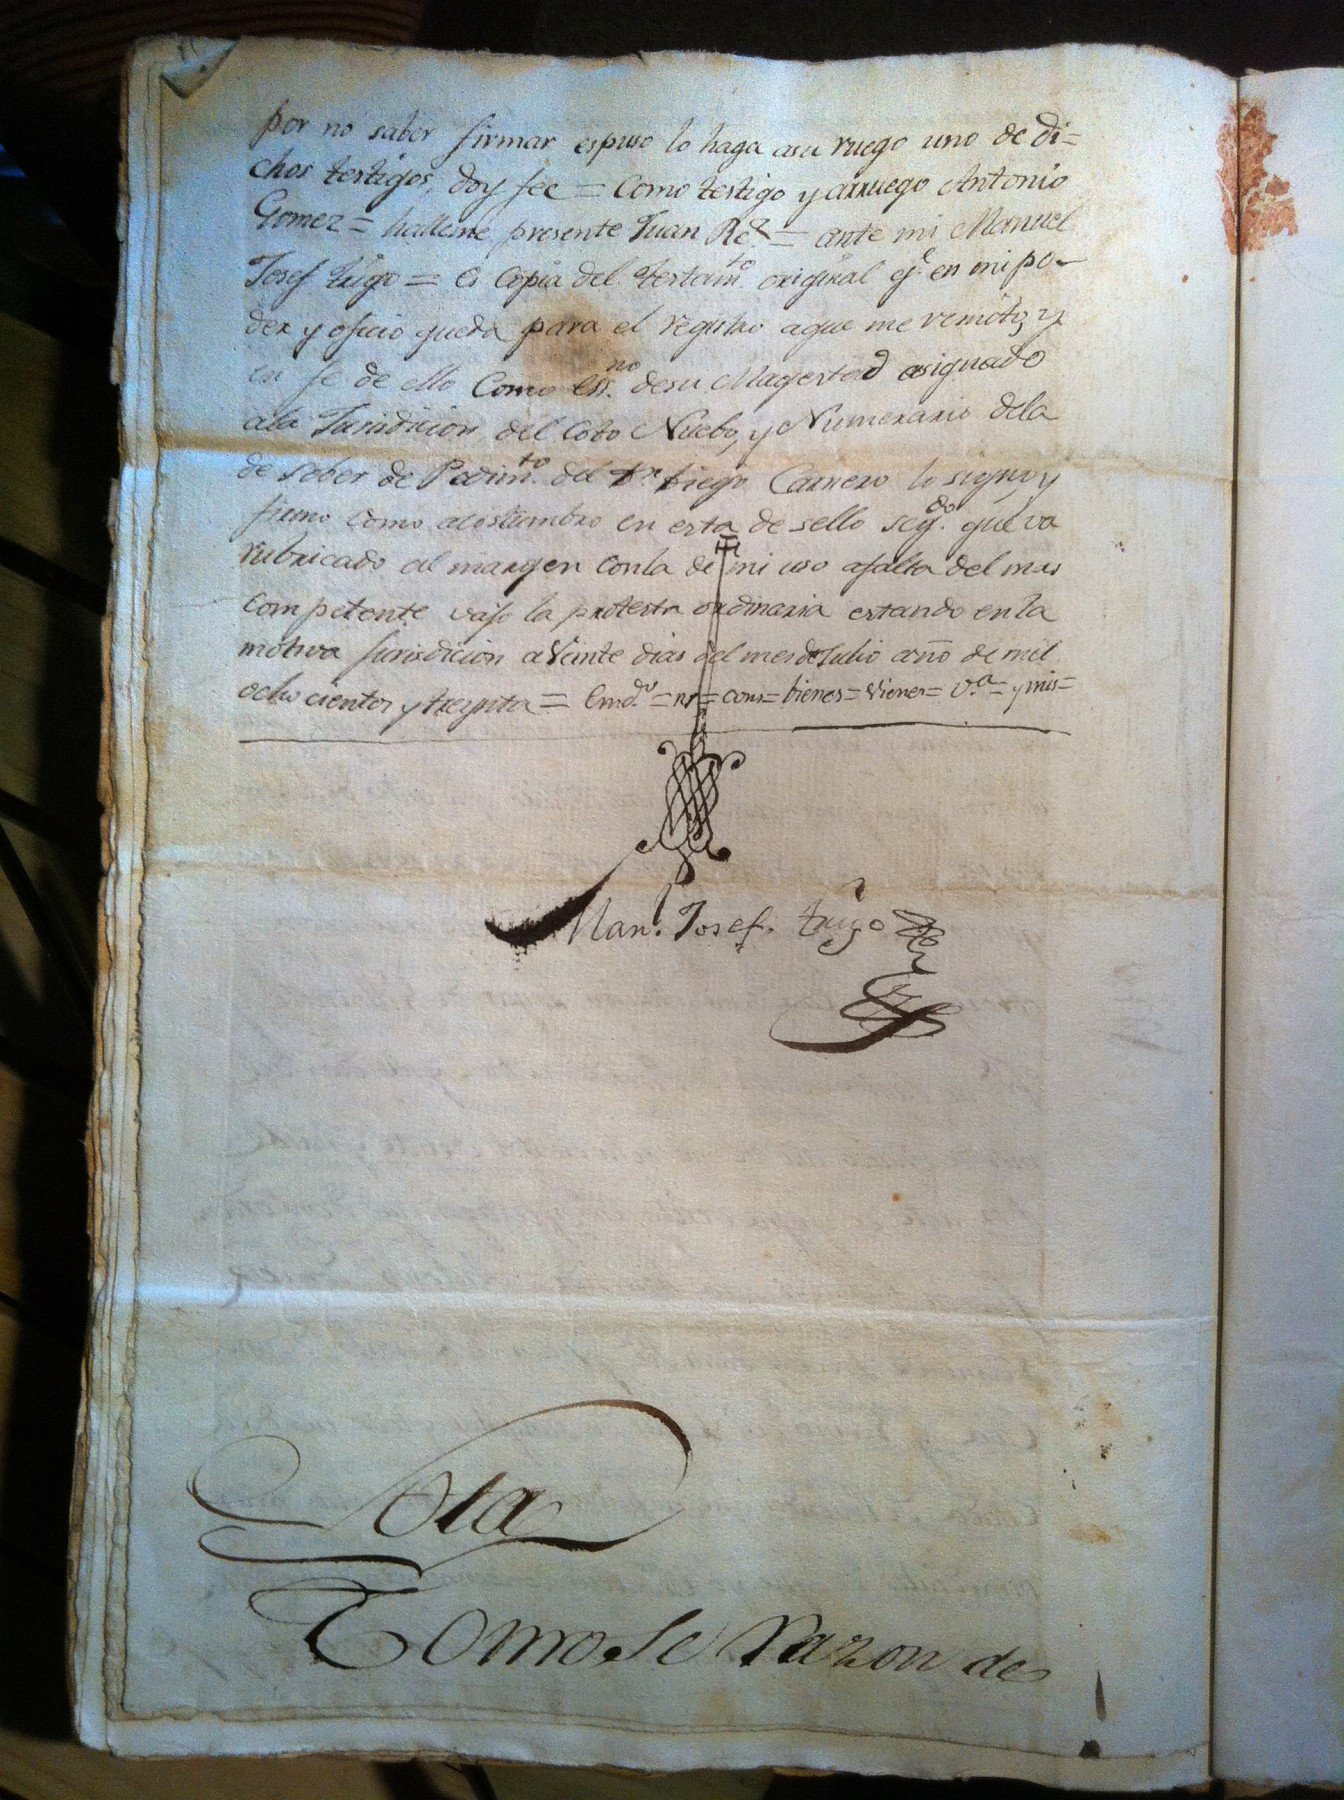 por no saber firmar espuso lo haga asu ruego uno de di=
chos testigos, doy fee = Como testigo y arruego Antonio
Gomez = halleme presente Juan Rez = ante mi Manuel
Josef trigo = es Copia del testamto. original qe. en mi po-
der y oficio queda para el registro aque me remito, y
en fe de ello Como essno. desu Magestad asignado
ala Jurisdicion del Coto Nuebo, y Numerario dela
de Sober de Pedimto. del Dn Diego Carnero lo signo, y
firmo como acostumbro en esta de sello segdo. que va
rubricado al margen conla de mi uso afalta del mas
competente vajo la protesta ordinaria estando en la
motiva Jurisdicion a Veinte dias del mes de Julio año de mil
ocho cientos y treynta = Emdo. = = cons= bienes= Vienes= v.a= y mis=
Man.l Josef. trigo
Nota
Tomose Razon de